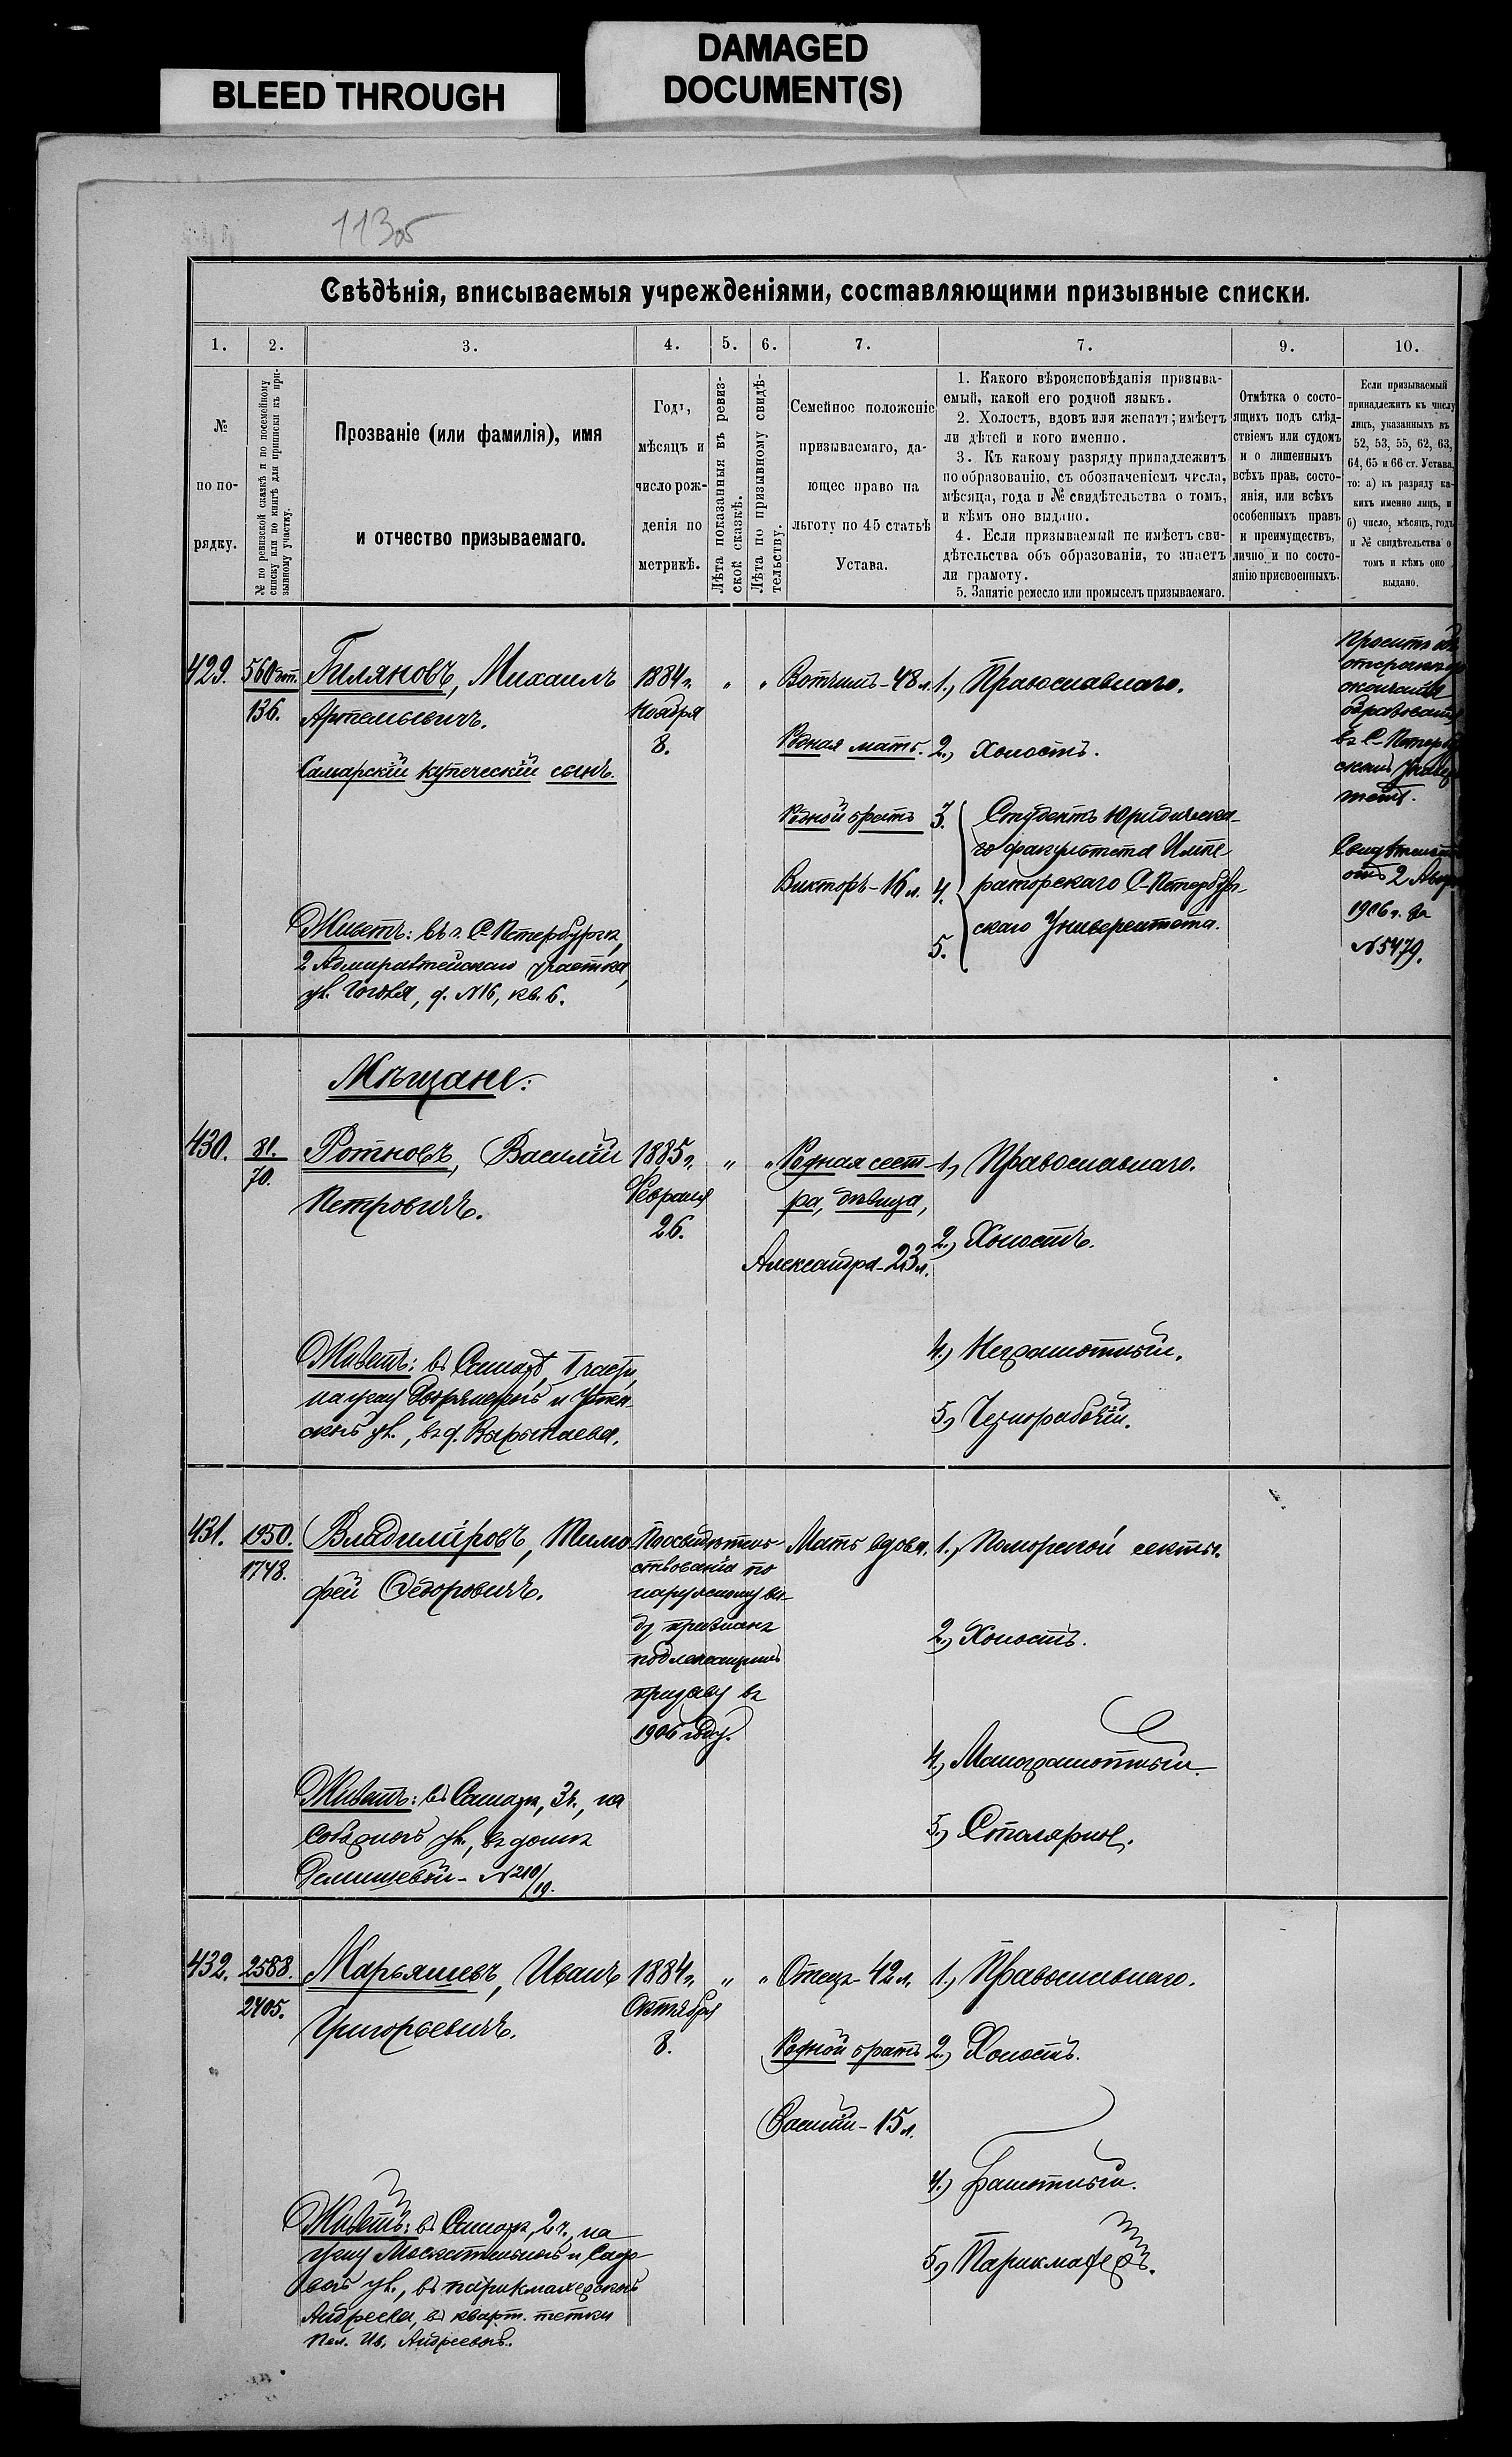 BLEED THROUGH
DAMAGED
DOCUMENT(S)
1130б
Свѣдѣнія, вписываемыя учрежденіями, составляющими призывные списки.
1.
2.
3.
4.
5.
6.
7.
7.
9.
10.
№
по по-
рядку.
№ по ревизской сказкѣ и по посемейному
списку или по книгѣ для приписки къ при-
зывному участку.
Прозваніе (или фамилія), имя
и отчество призываемаго.
Годъ,
мѣсяцъ и
число рож-
денія по
метрикѣ.
Лѣта показанныя въ ревиз-
ской сказкѣ.
Лѣта по призывному свидѣ-
тельству.
Семейное положеніе
призываемаго, да-
ющее право на
льготу по 45 статьѣ
Устава.
1. Какого вѣроисповѣданія призыва-
емый, какой его родной языкъ.
2. Холостъ, вдовъ или женатъ; имѣетъ
ли дѣтей и кого именно.
3. Къ какому разряду принадлежитъ
по образованію, съ обозначеніемъ числа,
мѣсяца, года и № свидѣтельства о томъ,
и кѣмъ оно выдано.
4. Если призываемый не имѣетъ сви-
дѣтельства объ образованіи, то знаетъ
ли грамоту.
5. Занятіе ремесло или промыселъ призываемаго.
Отмѣтка о состо-
ящихъ подъ слѣд-
ствіемъ или судомъ
и о лишенныхъ
всѣхъ прав. состо-
янія, или всѣхъ
особенныхъ правъ
и преимуществъ,
лично и по состо-
янію присвоенныхъ.
Если призываемый
принадлежитъ къ числу
лицъ, указанныхъ въ
52, 53, 55, 62, 63,
64, 65 и 66 ст. Устава,
то: а) къ разряду ка-
кихъ именно лицъ, и
б) число, мѣсяцъ, годъ
и № свидѣтельства о
томъ и кѣмъ оно
выдано.
429.
560
136.
Гиляновъ, Михаилъ
Артемьевичъ.
Самарскій купеческій сынъ.
Живетъ: въ г. С-Петербургѣ,
2 Адмиралтейскаго участка,
ул. Гоголя, д. №16, кв. 6.
1884 г.
Ноября
8.
"
"
Вотчимъ-48 л.
Родная мать.
Родной братъ
Викторъ-16 л.
1., Православнаго.
2., Холостъ.
3. Студентъ Юридическа-
го факультета Импе
4. раторскаго С-Петербург-
скаго Университета.
5.
Проситъ объ
окончанія
образованія
въ С-Петербу
скомъ
тетѣ.
отъ 2 Авгу
1906 г. за
№5479.
Мѣщане:
430.
81.
70.
Ротновъ, Василій
Петровичъ.
Живетъ: въ Самарѣ, I части,
на углу Дворянской и
ской ул., въ д. Вырыпаева.
1885 г.
Февраля
26.
"
"
Родная сест-
ра, дѣвица,
Александра-23 л.
1., Православнаго.
2., Холостъ.
4.) Неграмотный.
5.) Чернорабочій.
431.
1950.
1748.
Владиміровъ, Тимо-
фей Ѳедоровичъ.
Живетъ: въ Самарѣ, 3 ч., на
Соборной ул., въ домѣ
№210/19.
По освидѣтель-
ствованіи по
наружному ви-
ду признанъ
подлежащимъ
призыву въ
1906 году.
Мать вдова.
1., Поморской секты.
2., Холостъ.
4., Малограмотный.
5.) Столярное.
432.
2588.
2405.
Марьяшевъ, Иванъ
Григорьевичъ.
Живетъ: въ Самарѣ, 2 ч., на
углу Москательной и Садо
вой ул., въ парикмахерской
Андреева, въ кварт. тетки
Пел. Ив. Андреевой.
1884 г.
Октября
8.
"
"
Отецъ-42 л.
Родной братъ
Василій-15 л.
1., Православнаго.
2., Холостъ.
4.) Грамотный.
5.) Парикмахеръ.